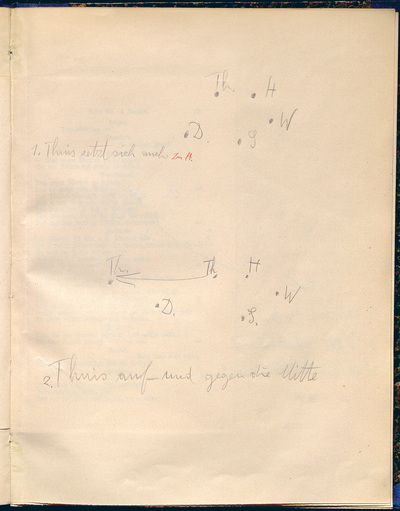 Th. H
W
D. S
1. Thuis setzt sich auch zu H.
Th. Th. H
W
D. S.
2. Thuis auf und gegen die Mitte